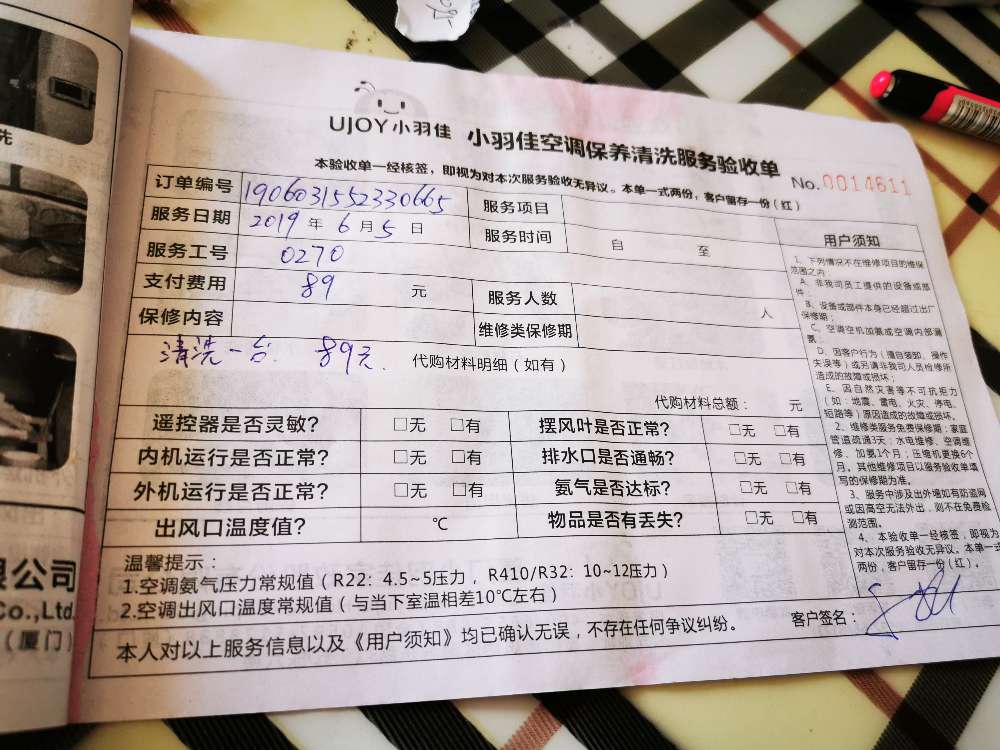 UJOY小羽佳 小羽佳空调保养清洗服务验收单
本验收单一经核签，即视为对本次服务验收无异议。本单一式两份，客户留存一份（红）
No.0014611
订单编号 1906031552330665 服务项目
服务日期 2019年6月5日 服务时间 自 至
服务工号 0270
支付费用 89 元 服务人数 人
保修内容 维修类保修期
清洗一台 89元.
代购材料明细（如有）
代购材料总额： 元
遥控器是否灵敏? □无 □有 摆风叶是否正常? □无 □有
内机运行是否正常? □无 □有 排水口是否通畅? □无 □有
外机运行是否正常? □无 □有 氨气是否达标? □无 □有
出风口温度值? ℃ 物品是否有丢失? □无 □有
温馨提示：
1.空调氨气压力常规值（R22：4.5~5压力，R410/R32：10~12压力）
2.空调出风口温度常规值（与当下室温相差10℃左右）
本人对以上服务信息以及《用户须知》均已确认无误，不存在任何争议纠纷。
客户签名：
用户须知
1、下列情况不在维修项目的维保
范围之内
A、非我司员工提供的设备或部
件；
B、设备或部件本身已经超过出厂
保修期；
C、空调空机加氨或空调内部漏
氨；
D、因客户行为（擅自装卸、操作
失误等）或另请非我司人员检修所
造成的故障或损坏；
E、因自然灾害等不可抗拒力
（如：地震、雷电、火灾、停电、
短路等）原因造成的故障或损坏。
2、维修类服务免费保修期：家庭
管道疏通3天；水电维修、空调维
修、加氨1个月；压缩机更换6个
月。其他维修项目以服务验收单填
写的保修期为准。
3、服务中涉及出外墙如有防盗网
或因高空无法外出，则不在免费检
测范围。
4、本验收单一经核签，即视为
对本次服务验收无异议。本单一式
两份，客户留存一份（红）。
先
限公司
Co.,Ltd.
（厦门）